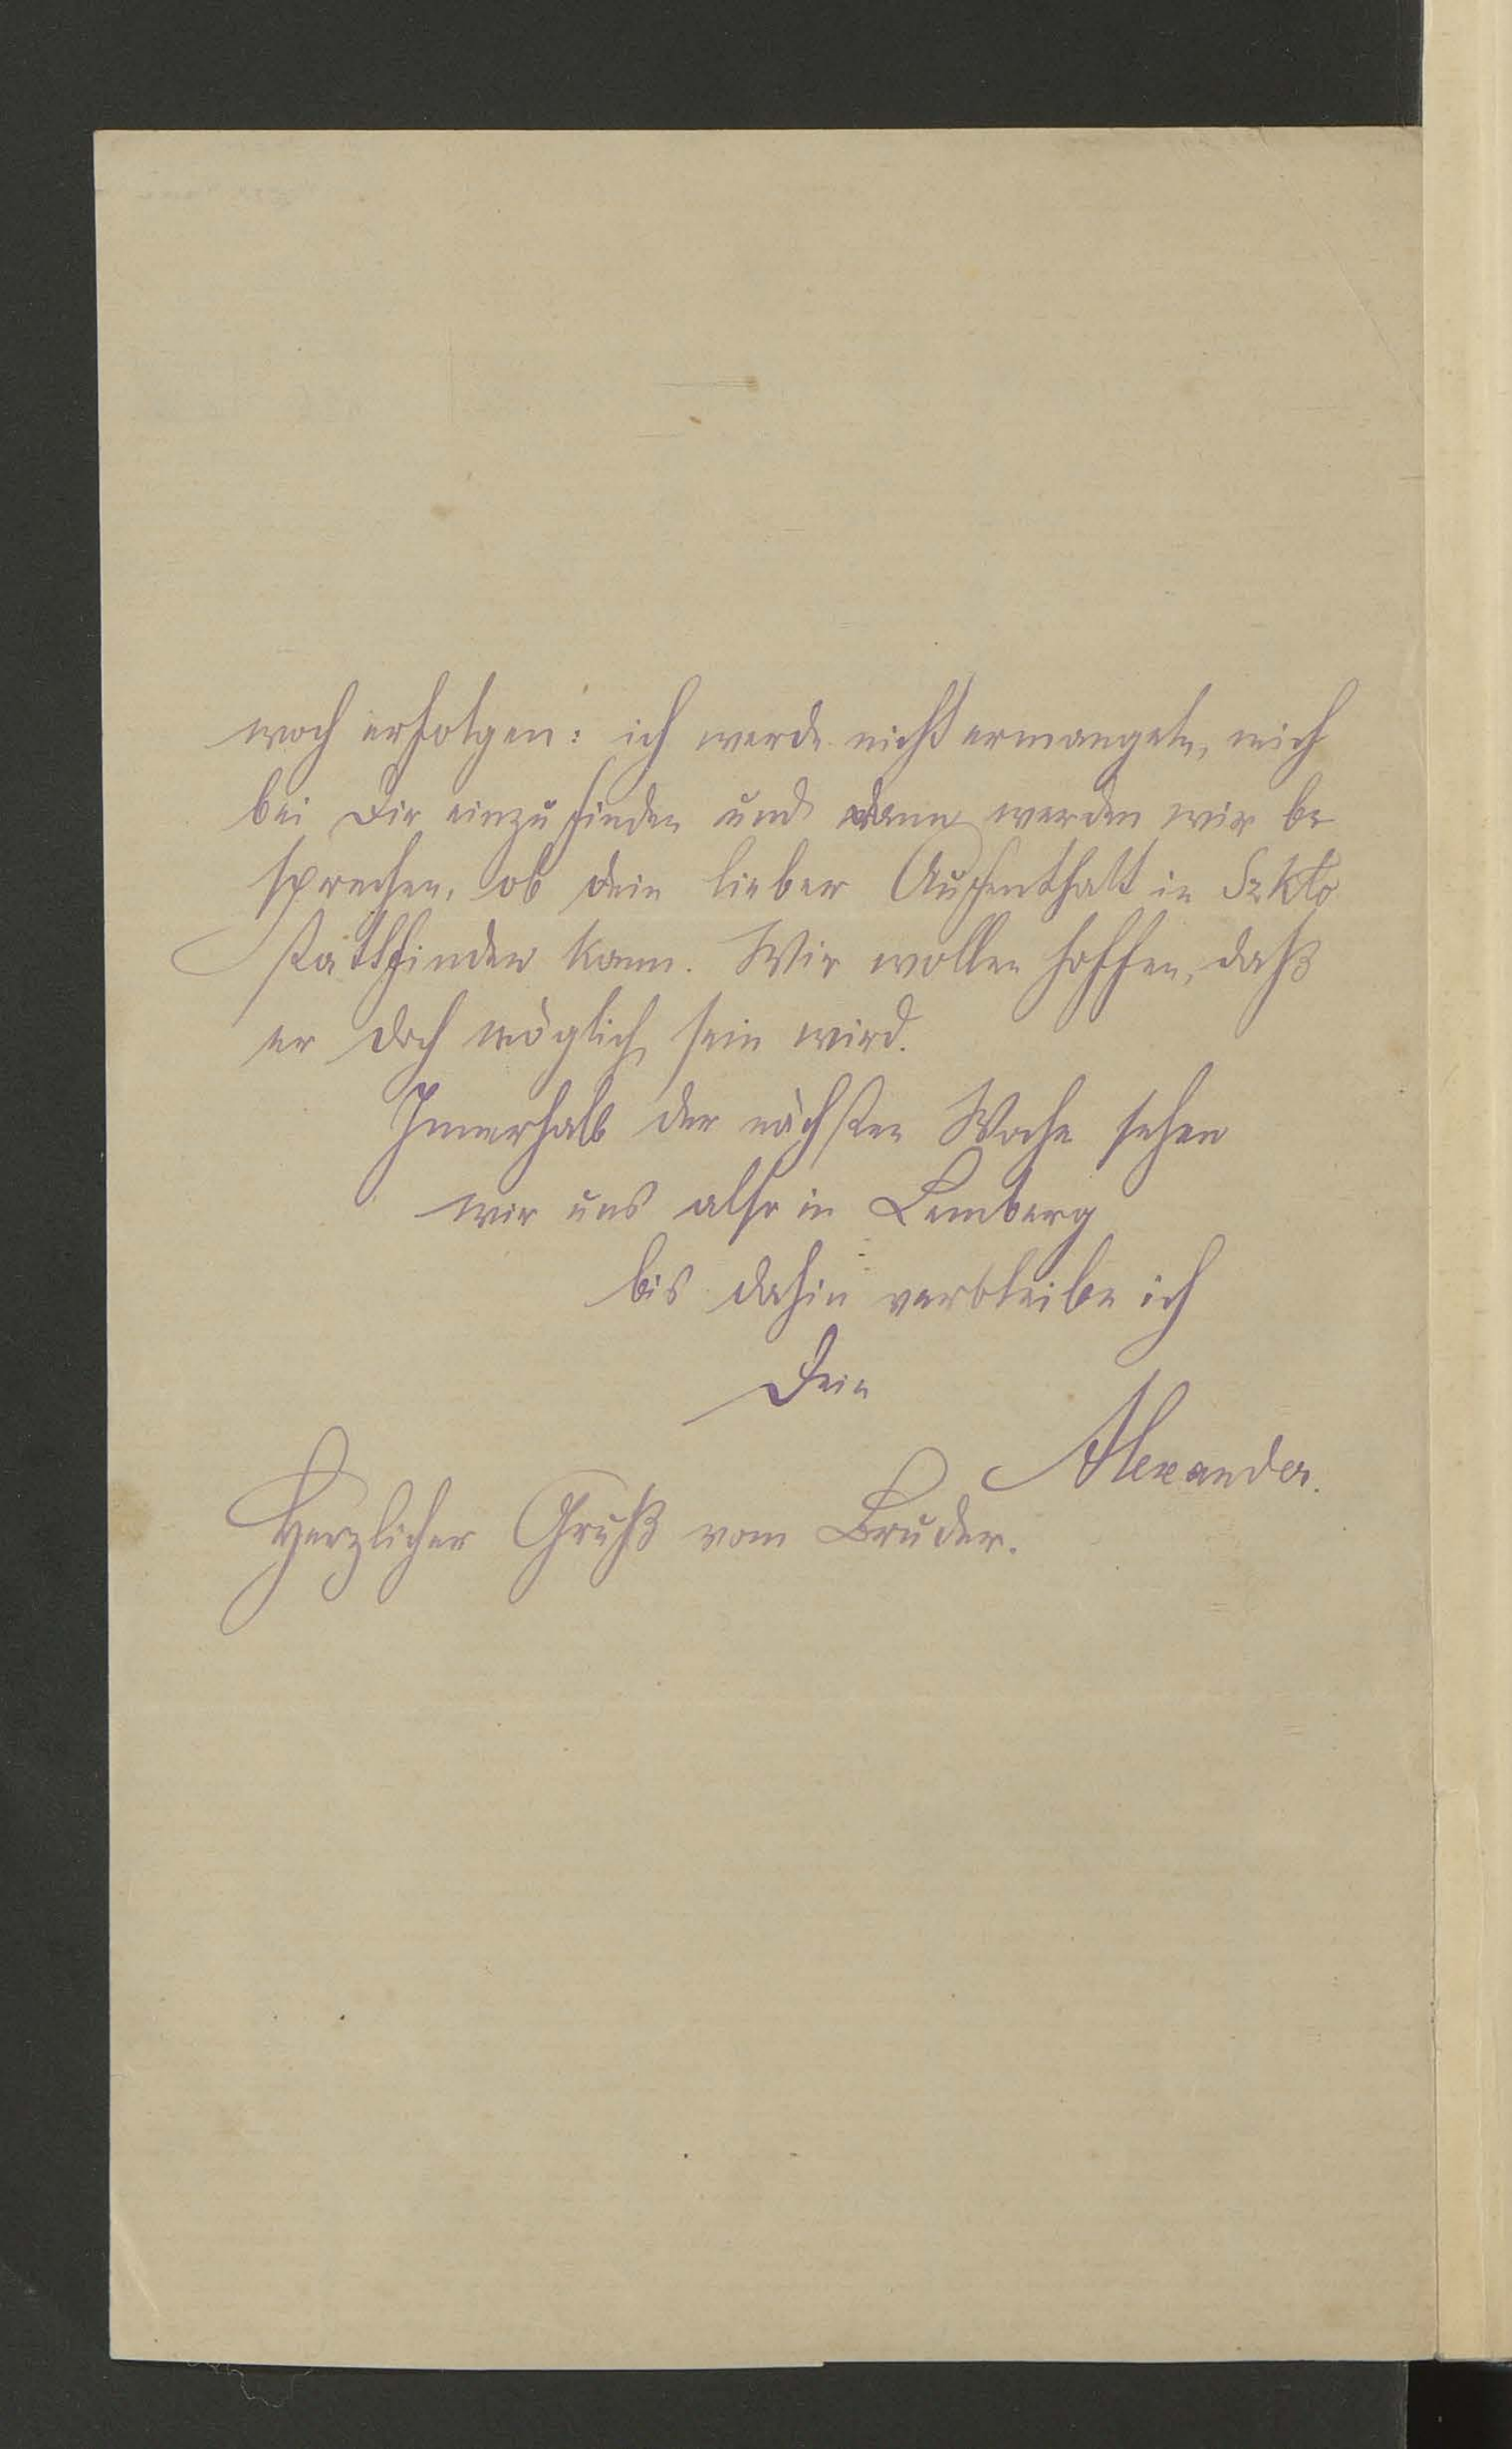 woch erfolgen: ich werde nicht ermangeln, mich
bei Dir einzufinden und dann werden wir be
sprechen, ob dein lieber Aufenthalt in Szkło
stattfinden kann. Wir wollen hoffen, daß
er doch möglich sein wird.
Innerhalb der nächsten Woche sehen
wir uns also in Lemberg
bis dahin verbleibe ich
Dein
Alexander.
Herzlicher Gruß vom Bruder.